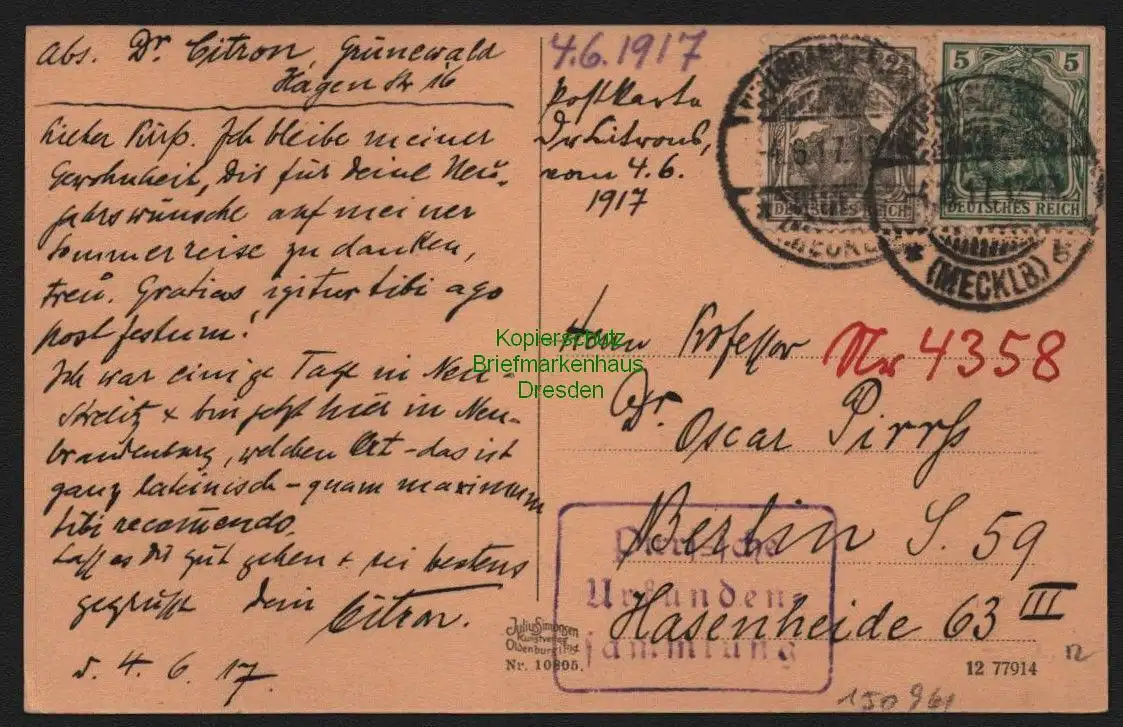 Abs. Dr Citron, Grunewald
Hagen Str 16
Lieber Pirß. Ich bleibe meiner
Gewohnheit, Dir für Deine Neu-
jahrswünsche auf meiner
Sommerreise zu danken,
treu. Gratias igitur tibi ago
post festum!
Ich war einige Tage in Neu-
Strelitz + bin jetzt hier in Neu-
brandenburg, welchen Ort - das ist
ganz lateinisch - quam maximum
tibi recomendo.
Laß es Dir gut gehen + sei bestens
gegrüßt Dein Citron.
d. 4. 6. 17.
4.6.1917
Postkarte
Dr Citrons,
vom 4.6.
1917
DEUTSCHES REICH
5 5
DEUTSCHES REICH
(MECKLB.)
Herrn Professor
Nr 4358
Dr.
Oscar Pirrß
Berlin S. 59
Hasenheide 63 III
Urkunden-
sammlung
Kopierschutz
Briefmarkenhaus
Dresden
Julius Simonsen
Kunstverlag
Oldenburg i/Hg.
Nr. 10805.
12 77914
12
150 961